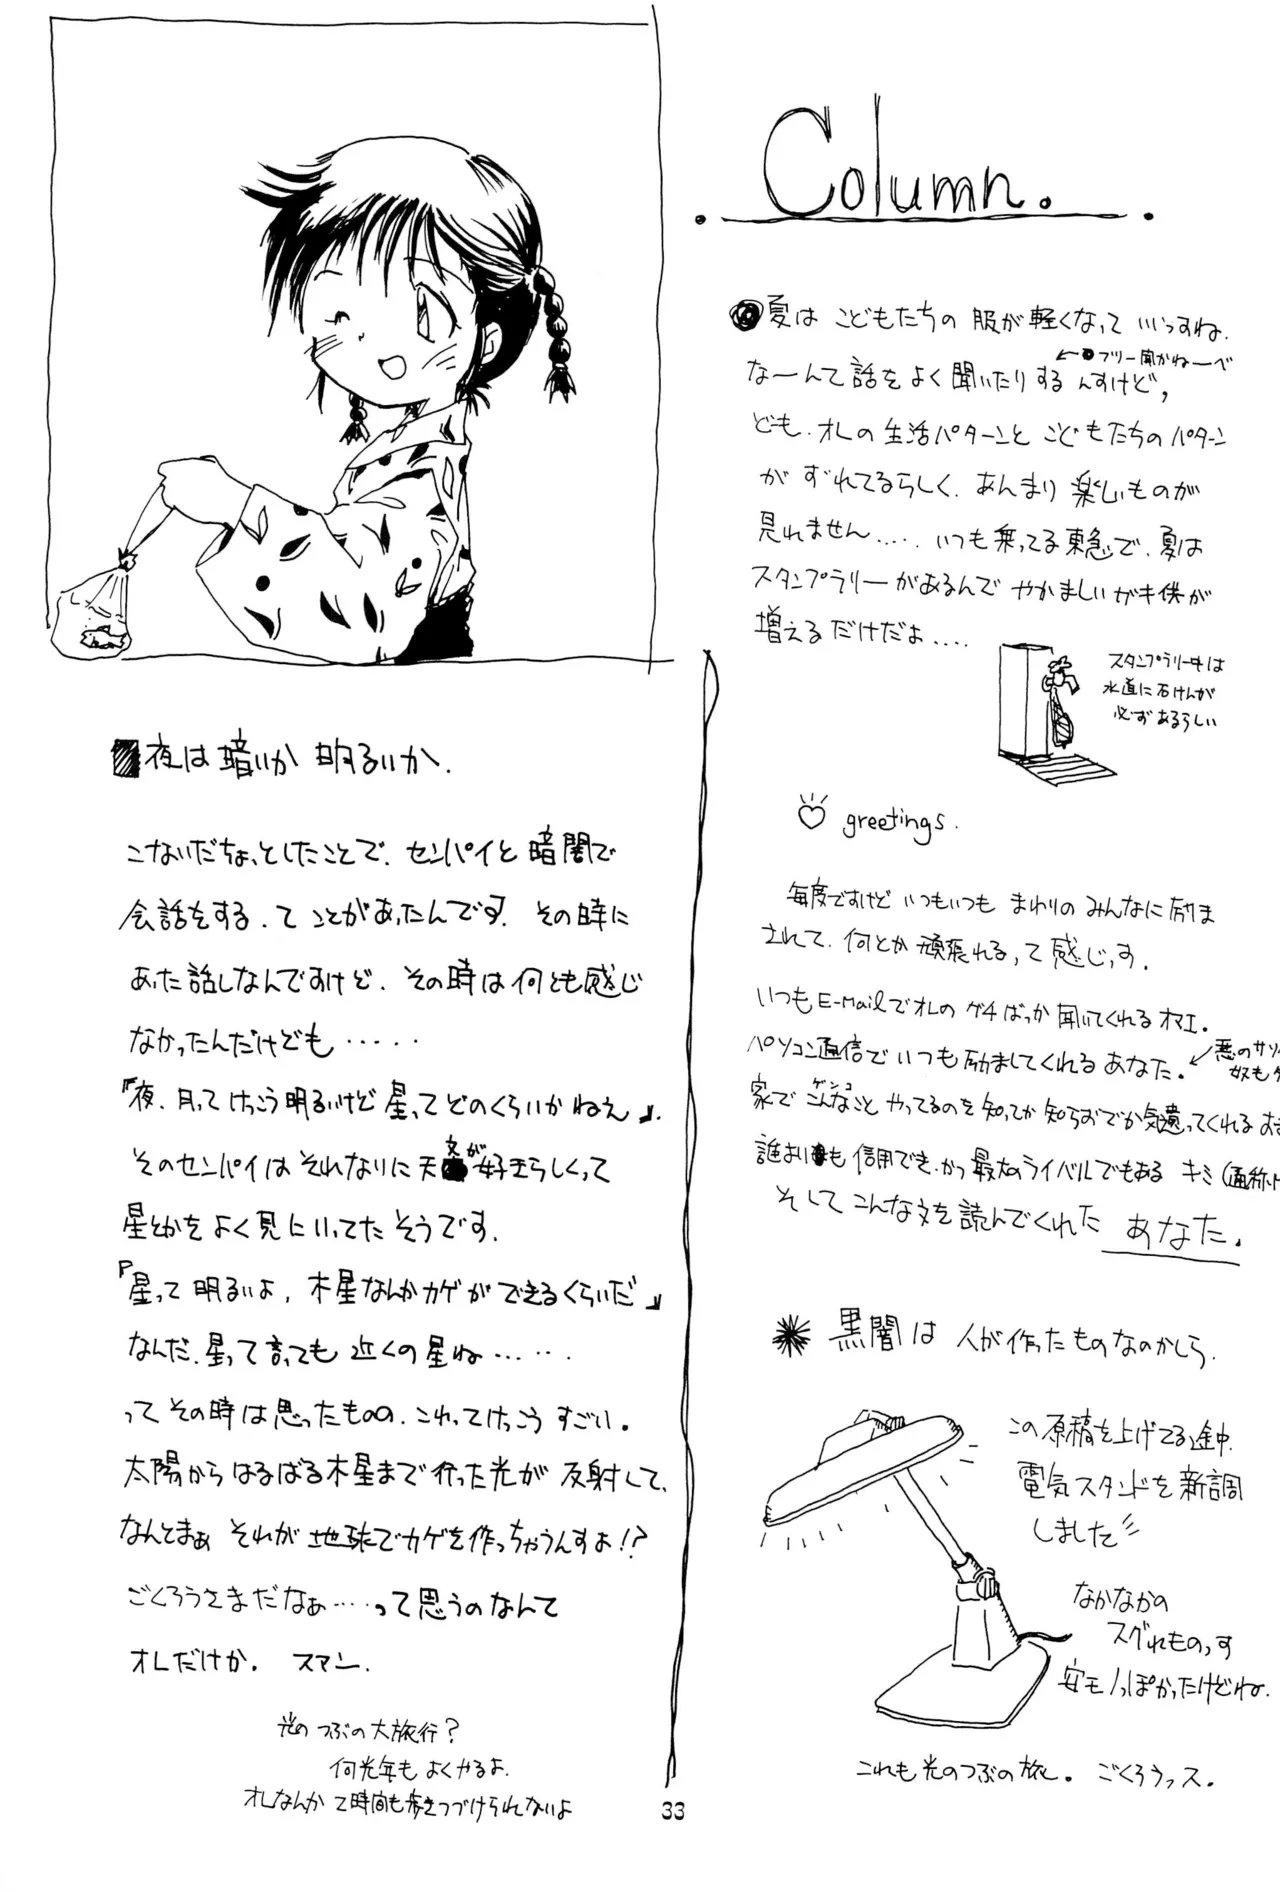 Column.
●夏は こどもたちの 服が軽くなって いいっすね.
←●フリー聞かねーべ
なーんて話をよく聞いたりするんすけど,
ども.オレの生活パターンと こどもたちのパターン
が ずれてるらしく.あんまり楽しいものが
見れません..... いつも乗ってる東急で.夏は
スタンプラリーがあるんで やかましいガキ供が
増えるだけだよ....
スタンプラリー中は
水道に石けんが
必ずあるらしい
♡ greetings.
毎度ですけど いつもいつも まわりの みんなに励ま
されて.何とか頑張れるって感じっす.
いつもE-Mailでオレの グチばっか聞いてくれるオマエ.
パソコン通信で いつも励ましてくれる あなた.
←悪のサソ
奴も
ゲンコ
家で こんなこと やってるのを知ってか知らずでか気遣ってくれる
誰よりも信用でき.かつ最大のライバルでもある キミ(通称.
そして こんな文を読んでくれた あなた.
＊黒闇は 人が作ったものなのかしら.
この原稿を上げてる途中.
電気スタンドを新調
しました
なかなかの
スグれものっす
安モノっぽかったけどね.
これも光のつぶの旅し. ごくろうっス.
■夜は暗いか 明るいか.
こないだちょっとしたことで.センパイと暗闇で
会話をする.てことがあったんです. その時に
あった話しなんですけど.その時は何とも感じ
なかったんだけども.....
『夜.月ってけっこう明るいけど星ってどのくらいかねえ』.
そのセンパイは それなりに天文が好きらしくって
星とかをよく見にいってた そうです.
『星って明るいよ,木星なんかカゲができるくらいだ』
なんだ.星って言っても近くの星ね.....
ってその時は思ったものの.これってけっこう すごい.
太陽から はるばる木星まで行った光が 反射して.
なんとまぁ それが地球でカゲを作っちゃうんすよ!?
ごくろうさまだなぁ....って思うのなんて
オレだけか. スマン.
光の つぶの大旅行?
何光年も よくやるよ.
オレなんか て時間も歩きつづけられないよ
33